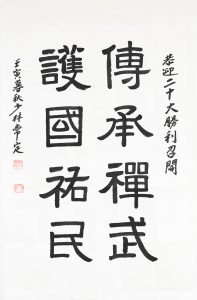 恭迎二十大勝利召開
傳承禪武
護國祐民
壬寅暮秋少林常定